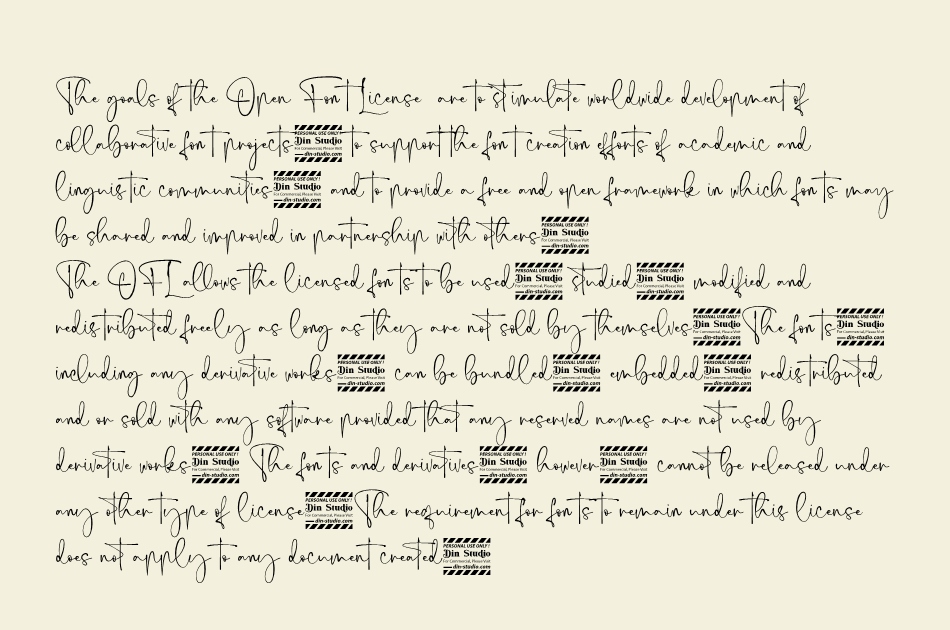 The goals of the Open Font License are to stimulate worldwide development of
collaborative font projects PERSONAL USE ONLY! Din Studio For Commercial, Please Visit din-studio.com to support the font creation efforts of academic and
linguistic communities PERSONAL USE ONLY! Din Studio For Commercial, Please Visit din-studio.com and to provide a free and open framework in which fonts may
be shared and improved in partnership with others PERSONAL USE ONLY! Din Studio For Commercial, Please Visit din-studio.com
The OFL allows the licensed fonts to be used PERSONAL USE ONLY! Din Studio For Commercial, Please Visit din-studio.com studied PERSONAL USE ONLY! Din Studio For Commercial, Please Visit din-studio.com modified and
redistributed freely as long as they are not sold by themselves PERSONAL USE ONLY! Din Studio For Commercial, Please Visit din-studio.com The fonts PERSONAL USE ONLY! Din Studio For Commercial, Please Visit din-studio.com
including any derivative works PERSONAL USE ONLY! Din Studio For Commercial, Please Visit din-studio.com can be bundled PERSONAL USE ONLY! Din Studio For Commercial, Please Visit din-studio.com embedded PERSONAL USE ONLY! Din Studio For Commercial, Please Visit din-studio.com redistributed
and or sold with any software provided that any reserved names are not used by
derivative works PERSONAL USE ONLY! Din Studio For Commercial, Please Visit din-studio.com The fonts and derivatives PERSONAL USE ONLY! Din Studio For Commercial, Please Visit din-studio.com however PERSONAL USE ONLY! Din Studio For Commercial, Please Visit din-studio.com cannot be released under
any other type of license PERSONAL USE ONLY! Din Studio For Commercial, Please Visit din-studio.com The requirement for fonts to remain under this license
does not apply to any document created PERSONAL USE ONLY! Din Studio For Commercial, Please Visit din-studio.com